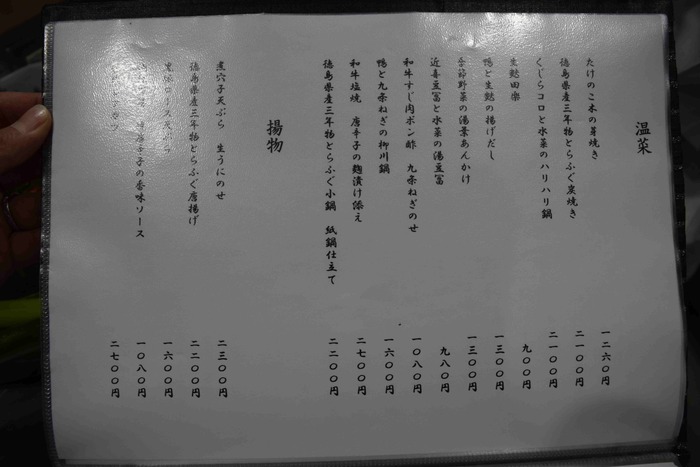 温菜
たけのこ木の芽焼き 一二六〇円
徳島県産三年物とらふぐ炭焼き 二一〇〇円
くじらコロと水菜のハリハリ鍋 二一〇〇円
生麩田楽 九〇〇円
鴨と生麩の揚げだし 一三〇〇円
季節野菜の湯葉あんかけ 一三〇〇円
近喜豆冨と水菜の湯豆冨 九八〇円
和牛すじ肉ポン酢 九条ねぎのせ 一〇八〇円
鴨と九条ねぎの柳川鍋 一六〇〇円
和牛塩焼 唐辛子の麹漬け添え 二七〇〇円
徳島県産三年物とらふぐ小鍋 紙鍋仕立て 二二〇〇円
揚物
煮穴子天ぷら 生うにのせ 二三〇〇円
徳島県産三年物とらふぐ唐揚げ 二二〇〇円
ロース 一六〇〇円
辛子の香味ソース 一〇八〇円
二七〇〇円